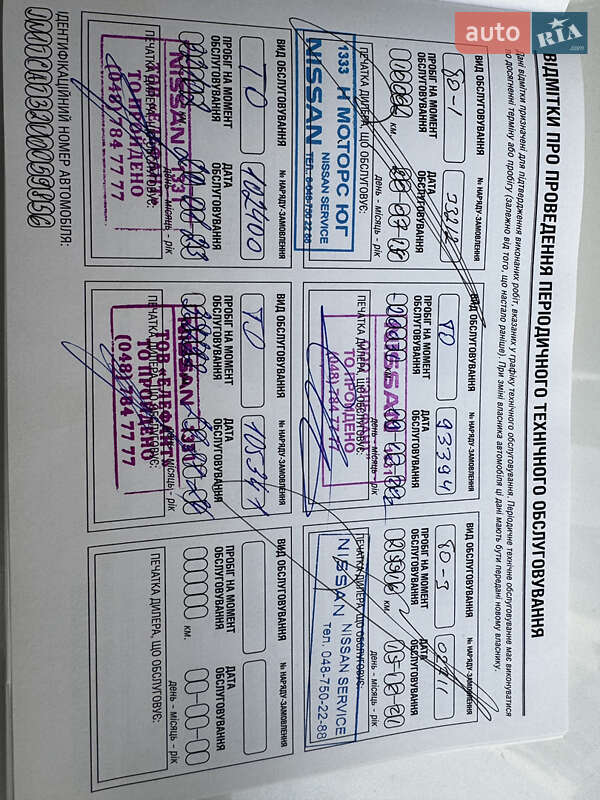 auto RIA.com
ВІДМІТКИ ПРО ПРОВЕДЕННЯ ПЕРІОДИЧНОГО ТЕХНІЧНОГО ОБСЛУГОВУВАННЯ
Дані відмітки призначені для підтвердження виконаних робіт, вказаних у графіку технічного обслуговування. Періодичне технічне обслуговування має виконуватися
по досягненні терміну або пробігу (залежно від того, що настало раніше). При зміні власника автомобіля ці дані мають бути передані новому власнику.
ВИД ОБСЛУГОВУВАННЯ
№ НАРЯДУ-ЗАМОВЛЕННЯ
ТО-1
ПРОБІГ НА МОМЕНТ ОБСЛУГОВУВАННЯ
ДАТА ОБСЛУГОВУВАННЯ
км.
день – місяць - рік
ПЕЧАТКА ДИЛЕРА, ЩО ОБСЛУГОВУЄ:
1333 Н МОТОРС ЮГ
NISSAN NISSAN SERVICE
ТЕЛ. 8-048-750-22-88
ВИД ОБСЛУГОВУВАННЯ
№ НАРЯДУ-ЗАМОВЛЕННЯ
ТО
93394
ПРОБІГ НА МОМЕНТ ОБСЛУГОВУВАННЯ
ДАТА ОБСЛУГОВУВАННЯ
день – місяць - рік
ПЕЧАТКА ДИЛЕРА, ЩО ОБСЛУГОВУЄ:
NISSAN
ТО ПРОЙДЕНО
(048) 784 77 77
ВИД ОБСЛУГОВУВАННЯ
№ НАРЯДУ-ЗАМОВЛЕННЯ
ТО-3
ПРОБІГ НА МОМЕНТ ОБСЛУГОВУВАННЯ
ДАТА ОБСЛУГОВУВАННЯ
км.
день – місяць - рік
ПЕЧАТКА ДИЛЕРА, ЩО ОБСЛУГОВУЄ:
NISSAN NISSAN SERVICE
тел. 048-750-22-88
ВИД ОБСЛУГОВУВАННЯ
№ НАРЯДУ-ЗАМОВЛЕННЯ
ТО
102400
ПРОБІГ НА МОМЕНТ ОБСЛУГОВУВАННЯ
ДАТА ОБСЛУГОВУВАННЯ
день – місяць - рік
ПЕЧАТКА ДИЛЕРА, ЩО ОБСЛУГОВУЄ:
NISSAN
ТО ПРОЙДЕНО
(048) 784 77 77
ВИД ОБСЛУГОВУВАННЯ
№ НАРЯДУ-ЗАМОВЛЕННЯ
ТО
105341
ПРОБІГ НА МОМЕНТ ОБСЛУГОВУВАННЯ
ДАТА ОБСЛУГОВУВАННЯ
місяць - рік
ПЕЧАТКА ДИЛЕРА, ЩО ОБСЛУГОВУЄ:
NISSAN
(048) 784 77 77
ВИД ОБСЛУГОВУВАННЯ
№ НАРЯДУ-ЗАМОВЛЕННЯ
ПРОБІГ НА МОМЕНТ ОБСЛУГОВУВАННЯ
ДАТА ОБСЛУГОВУВАННЯ
км.
день – місяць - рік
ПЕЧАТКА ДИЛЕРА, ЩО ОБСЛУГОВУЄ:
ІДЕНТИФІКАЦІЙНИЙ НОМЕР АВТОМОБІЛЯ: